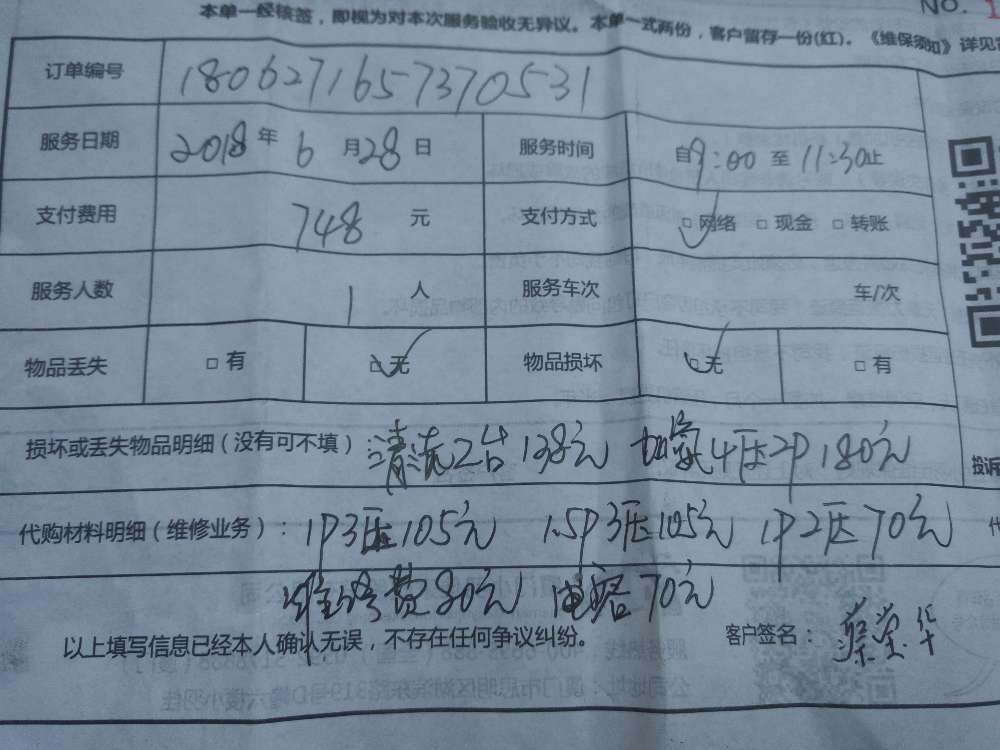 本单一经核签，即视为对本次服务验收无异议。本单一式两份，客户留存一份(红)。《维保须知》详见
NO.
订单编号 180627165737370531
服务日期 2018年6月28日 服务时间 自9:00至11:30止
支付费用 748元 支付方式 □网络 □现金 □转账
服务人数 1人 服务车次 车/次
物品丢失 □有 □无 物品损坏 □无 □有
损坏或丢失物品明细（没有可不填） 清洗2台138元 加氟4压2P180元
投诉
代购材料明细（维修业务）： 1P3压105元 1.5P3压105元 1P2压70元
维修费80元 电容70元
以上填写信息已经本人确认无误，不存在任何争议纠纷。 客户签名：蔡莹华